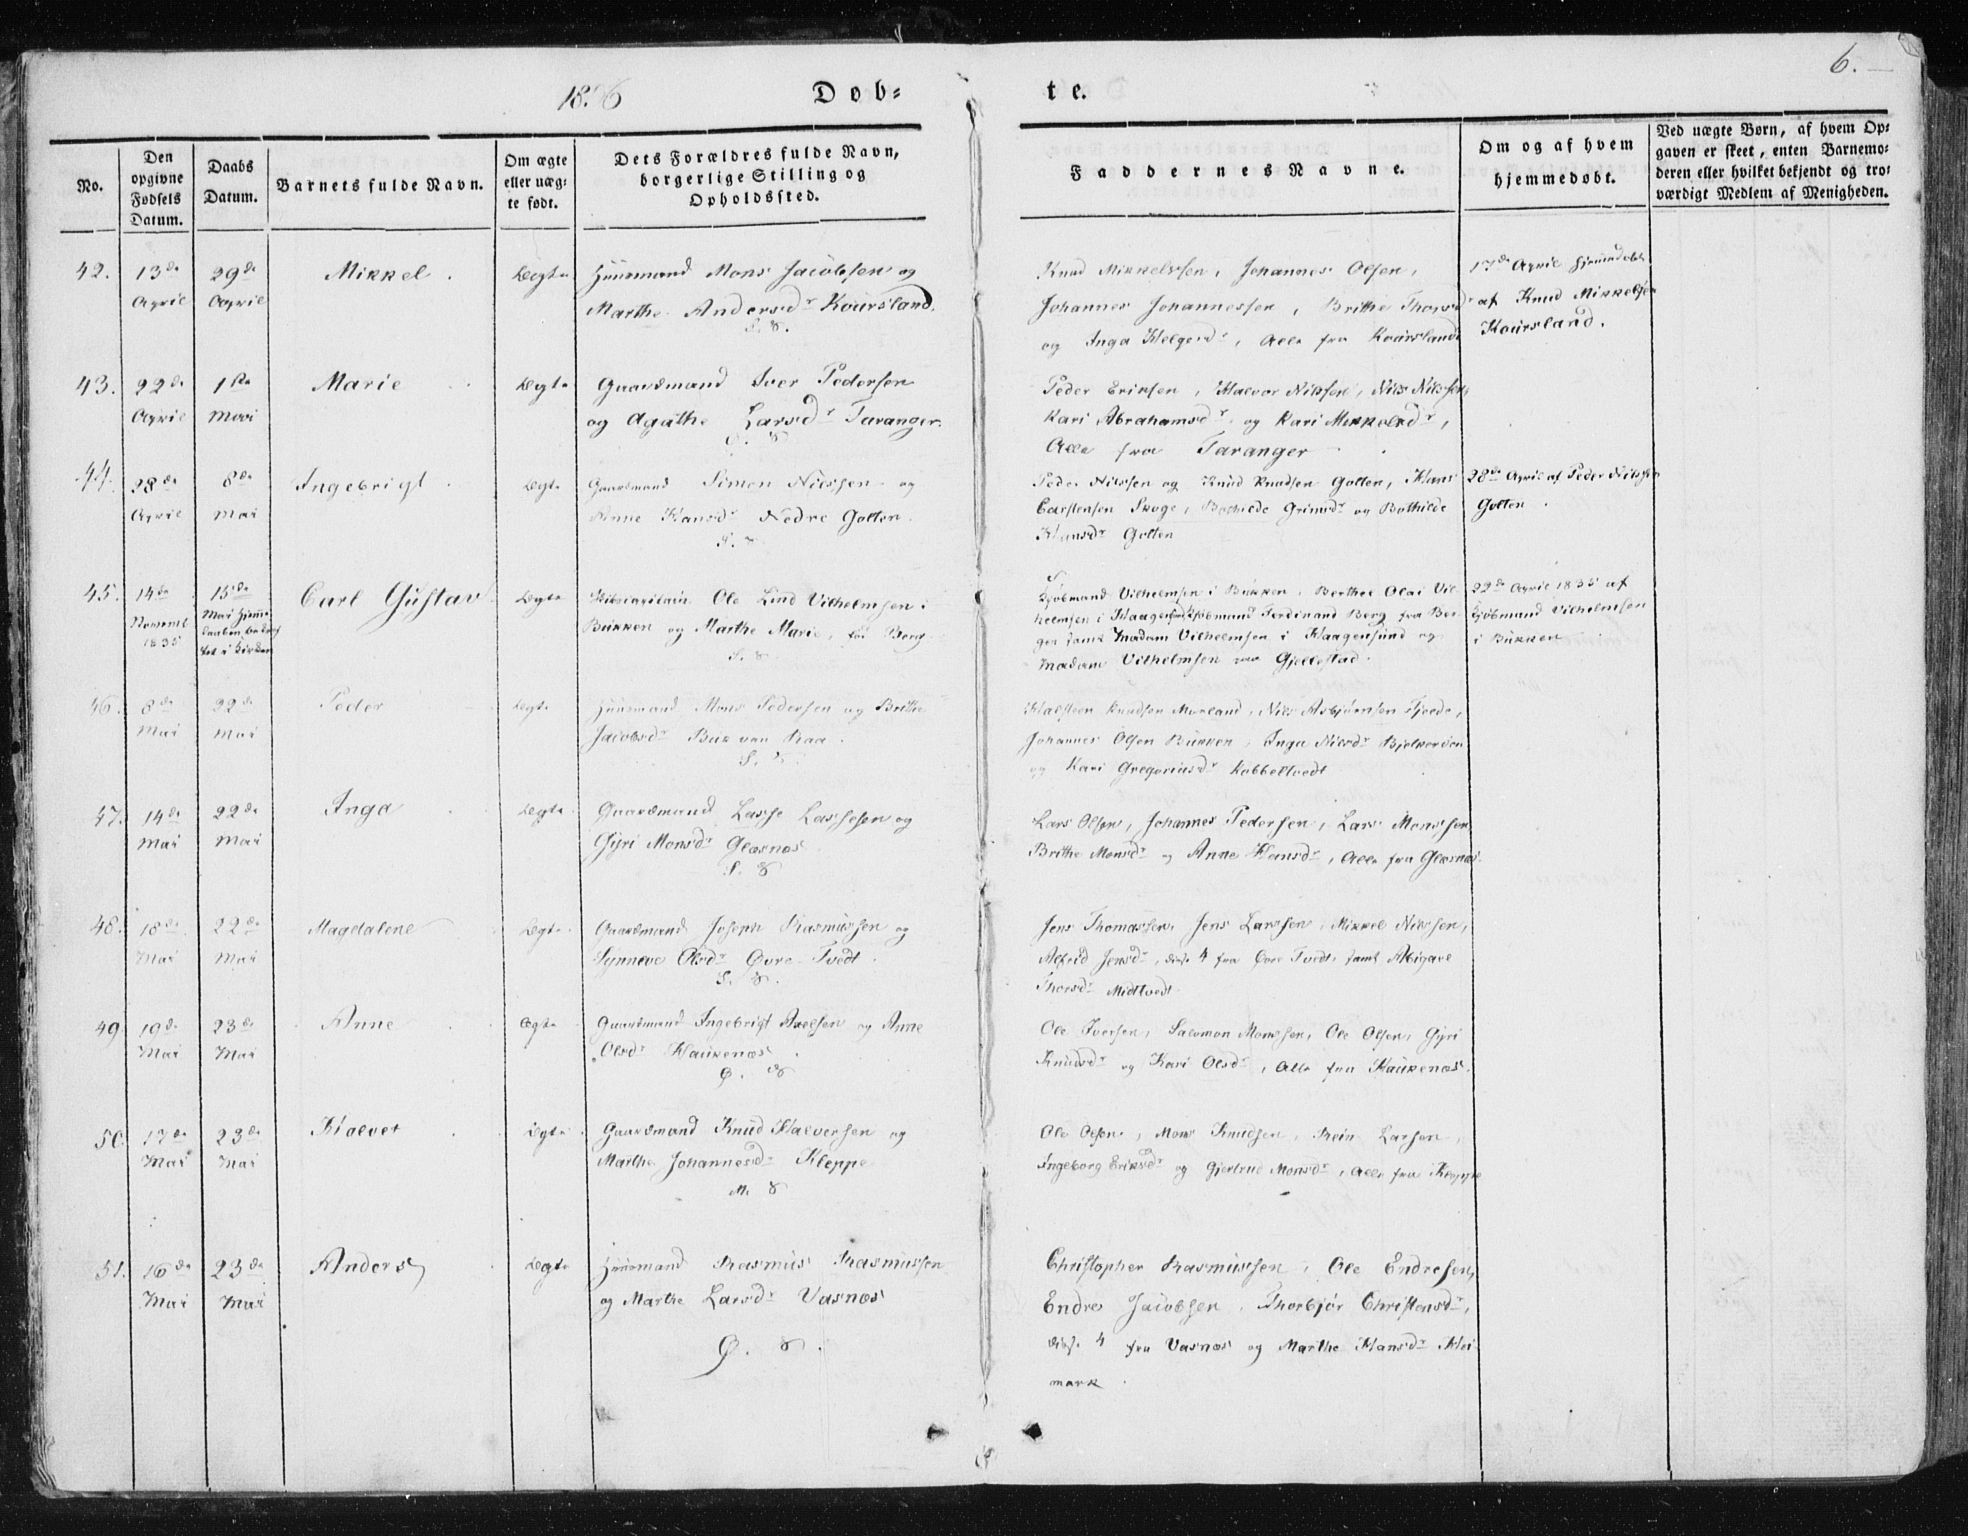 6.
1836 Døb- te.
No.
Den opgivne Fødsels Datum.
Daabs Datum.
Barnets fulde Navn.
Om ægte eller uæg- te født.
Dets Forældres fulde Navn, borgerlige Stilling og Opholdssted.
Faddernes Navne.
Om og af hvem hjemmedøbt.
Ved uægte Børn, af hvem Op- gaven er skeet, enten Barnemo- deren eller hvilket bekjendt og tro- værdigt Medlem af Menigheden.
42. 13de April 29de April Mikkel Ægte
Huusmand Mons Jacobsen og
Marthe Andersdr Koursland.
S. 8.
Knud Mikkelssen, Johannes Olsen,
Johannes Johannessen, Brithe Thorsdr
og Inga Helgesdr, Alle fra Koursland
17de April hjemmedøbt
af Knud Mikkelsen
Koursland.
43. 22de April 1ste Mai Marie Ægte
Gaardmand Iver Pedersen
og Agathe Larsdr Taranger.
Peder Eriksen, Halvor Nilssen, Nils Nilssen,
Kari Abrahamsdr og Kari Mikkelsdr,
Alle fra Taranger
44. 28de April 8de Mai Ingebrigt Ægte
Gaardmand Simon Nilssen og
Anne Hansdr Nedre Golten.
S. 8
Peder Nilssen og Knud Knudsen Golten, Hans
Carstensen Skoge, Bothilde Grimsdr og Bothilde
Hansdr Golten
28de April af Peder Nilssen
Golten.
45. 14de Novemb 1835 15de Mai Carl Gustav Ægte
Ole Lind Vilhelmsen i
Bukken og Marthe Marie, fød Berg.
S. 8
Kjøbmand Vilhelmsen i Bukken, Berthel Olai Vil-
helmsen i Haagensund, Kjøbmand Ferdinand Berg fra Ber-
gen samt Madam Vilhelmsen i Haagensund og
Madam Vilhelmsen paa Gjellestad.
22de April 1835 af
Kjøbmand Vilhelmsen
i Bukken
46. 8de Mai 22de Mai Peder Ægte
Huusmand Mons Pedersen og Brithe
Jacobsdr Bukken Raa.
S. 8.
Halsteen Knudsen Morland, Nils Asbjørnsen Tjeede,
Johannes Olsen Bukken, Inga Nilsdr Bjelkerøen
og Kari Gregoriusdr Kobbeltvedt
47. 14de Mai 22de Mai Inga Ægte
Gaardmand Lasse Lassesen og
Gyri Monsdr Glæsnæs
S. 8
Lars Olsen, Johannes Pedersen, Lars Monssen,
Brithe Monsdr og Anne Hansdr, Alle fra Glæsnæs
48. 18de Mai 22de Mai Magdalene Ægte
Gaardmand Joseph Rasmussen og
Synneve Olsdr Øvre Tvedt.
S. 8.
Jens Thomassen, Jens Larssen, Mikkel Nilssen,
Alfrid Jensdr, disse 4 fra Øvre Tvedt, samt Abigael
Thorsdr Midttvedt
49. 19de Mai 23de Mai Anne Ægte
Gaardmand Ingebrigt Axelsen og Anne
Olsdr Haukenæs.
Ø. 8
Ole Iversen, Salomon Monssen, Ole Olsen, Gyri
Knudsdr og Kari Olsdr, Alle fra Haukenæs.
50. 17de Mai 23de Mai Halvor Ægte
Gaardmand Knud Halversen og
Marthe Johannesdr Kleppe
M. 8
Ole Olsen, Mons Knudsen, Rein Larsen,
Ingeborg Eriksdr og Gjertrud Monsdr, Alle fra Kleppe
51. 16de Mai 23de Mai Anders Ægte
Huusmand Rasmus Rasmussen
og Marthe Larsdr Vasnæs
Ø. 8.
Christopher Rasmussen, Ole Endresen,
Endre Jacobsen, Thorbjør Christensdr,
disse 4 fra Vasnæs og Marthe Hansdr Klei-
mark.